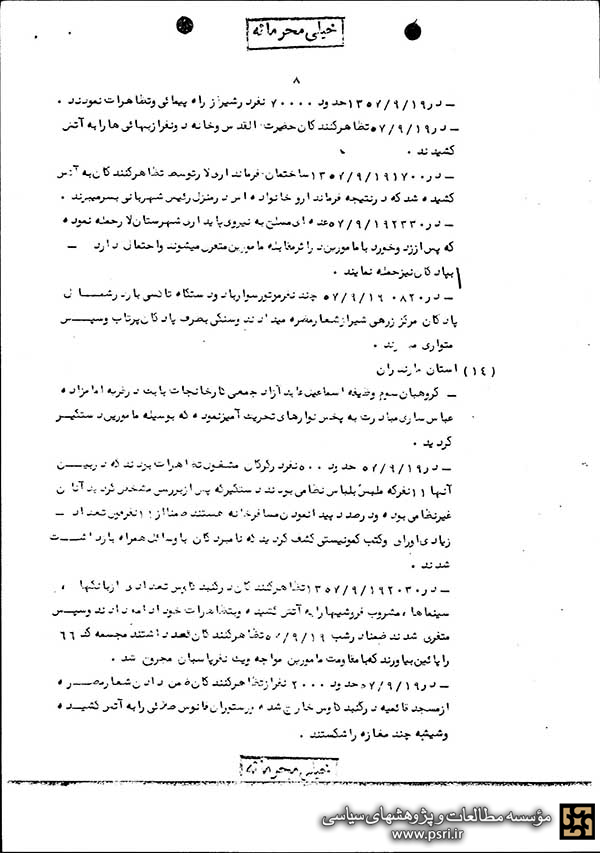 خیلی محرمانه
۸
ـ در ۱۳۵۷/۹/۱۹ حدود ۷۰۰۰۰ نفر در شیراز راه پیمائی و تظاهرات نمودند .
ـ در ۵۷/۹/۱۹ تظاهرکنندگان حضرت القدس و خانه دو نفر از بهائی ها را به آتش
کشیدند .
ـ در ۱۳۵۷/۹/۱۹۱۷۰۰ ساختمان فرمانداری لار توسط تظاهرکنندگان به آتش
کشیده شد که در نتیجه فرماندار و خانواده اش در منزل رئیس شهربانی بسر میبرند .
ـ در ۵۷/۹/۱۹۲۳۳۰ عده ای مسلح به نیروی پایداری شهرستان لار حمله نموده
که پس از زد و خورد با مامورین در اثر مقابله مامورین متفرق میشوند و احتمال دارد ـ
بپادگان نیز حمله نمایند .
ـ در ۵۷/۹/۱۶۰۸۲۰ چند نفر موتور سوار با دو دستگاه تاکسی بار در شمال
پادگان مرکز زرهی شیراز شعار مضره میدادند و سنگی بطرف پادگان پرتاب و سپس
متواری
(۱۴) استان مازندران
ـ گروهبان سوم وظیفه اسماعیل آزاد جمعی کارخانجات در قریه امامزاده
عباس ساری مبادرت به پخش نوارهای تحریک آمیز نموده که بوسیله مامورین دستگیر
گردید .
ـ در ۵۷/۹/۱۹ حدود ۵۰۰ نفر در گرگان مشغول تظاهرات بودند که در بین
آنها ۱۱ نفر که ملبس بلباس نظامی بودند دستگیر که پس از بررسی مشخص گردید آنان
غیر نظامی بوده و در صدد پیدا نمودن مسافرخانه هستند ضمنا از ۱۱ نفر من تعداد ـ
زیادی اوراق و کتب کمونیستی کشف گردید که نامبردگان با وسائل همراه بازداشت
شدند .
ـ در ۱۳۵۷/۹/۱۹۲۰۳۰ تظاهرکنندگان در گنبد کاوس تعدادی از بانکها ،
سینماها ، مشروب فروشیها را به آتش کشیده و بتظاهرات خود ادامه دادند و سپس
متفرق شدند ضمنا در شب ۵۷/۹/۱۹ تظاهرکنندگان قصد داشتند مجسمه کد ۶۶
را پائین بیاورند که با مقاومت مامورین مواجه و یک نفر پاسبان مجروح شد .
ـ در ۵۷/۹/۱۹ حدود ۲۰۰۰ نفر از تظاهرکنندگان ضمن دادن شعار مضره
از مسجد قائمیه در گنبد کاوس خارج شده و رستوران فانوس طلائی را به آتش کشیده
و شیشه چند مغازه را شکستند .
خیلی محرمانه
مؤسسه مطالعات و پژوهشهای سیاسی
www.psri.ir